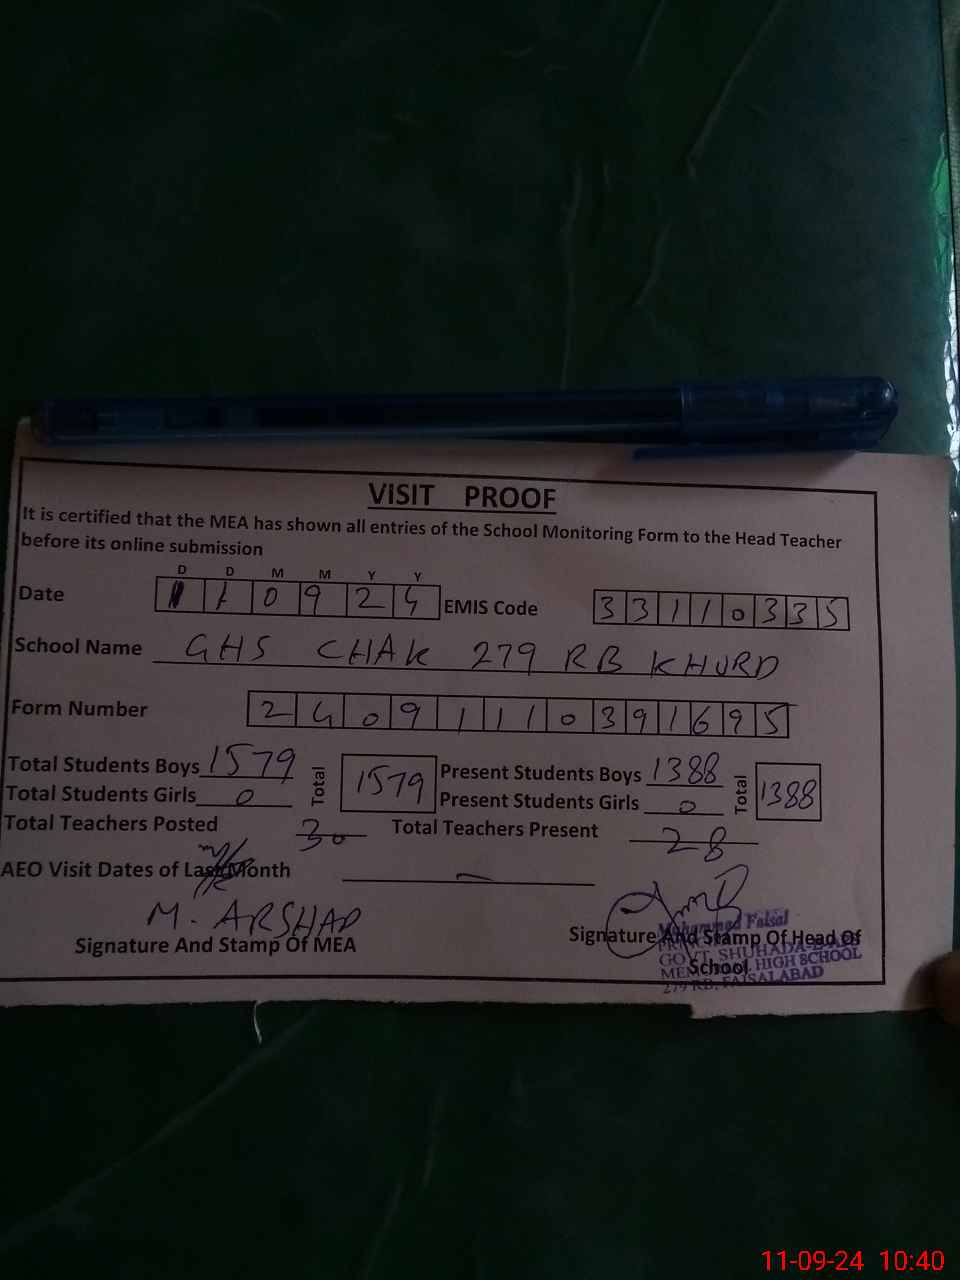 VISIT PROOF
It is certified that the MEA has shown all entries of the School Monitoring Form to the Head Teacher
before its online submission
D D M M Y Y
Date 1 1 0 9 2 4 EMIS Code 3 3 1 1 0 3 3 5
School Name GHS CHAK 279 RB KHURD
Form Number 2 4 0 9 1 1 1 0 3 9 1 6 9 5
Total Students Boys 1579 Total 1579 Present Students Boys 1388 Total 1388
Total Students Girls 0 Present Students Girls 0
Total Teachers Posted 30 Total Teachers Present 28
AEO Visit Dates of Last Month —
M. ARSHAD
Signature And Stamp Of MEA Signature And Stamp Of Head Of
School
Muhammad Faisal
GOVT. SHUHADA-E-APS
MEMORIAL HIGH SCHOOL
279 RB, FAISALABAD
11-09-24 10:40